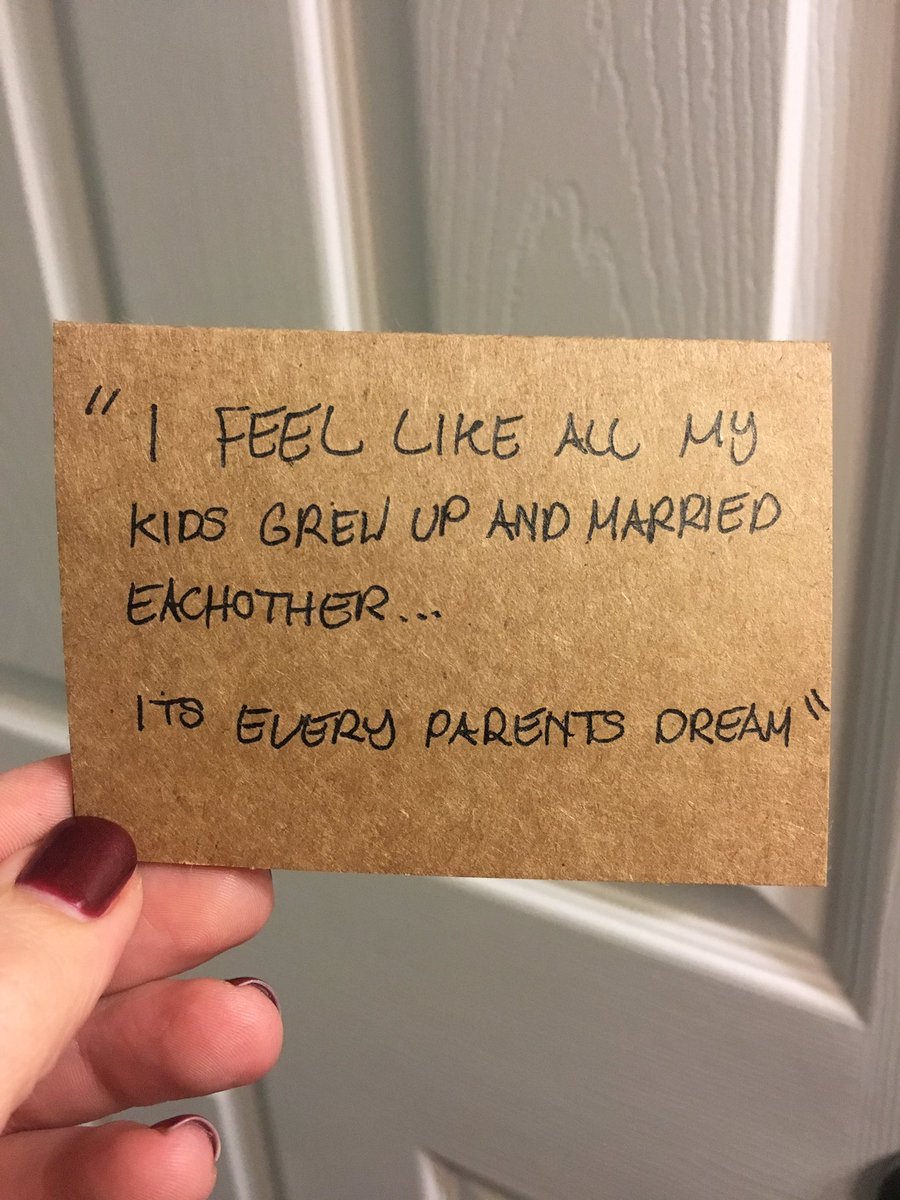 " I FEEL LIKE ALL MY
KIDS GREW UP AND MARRIED
EACHOTHER...
ITS EVERY PARENTS DREAM"